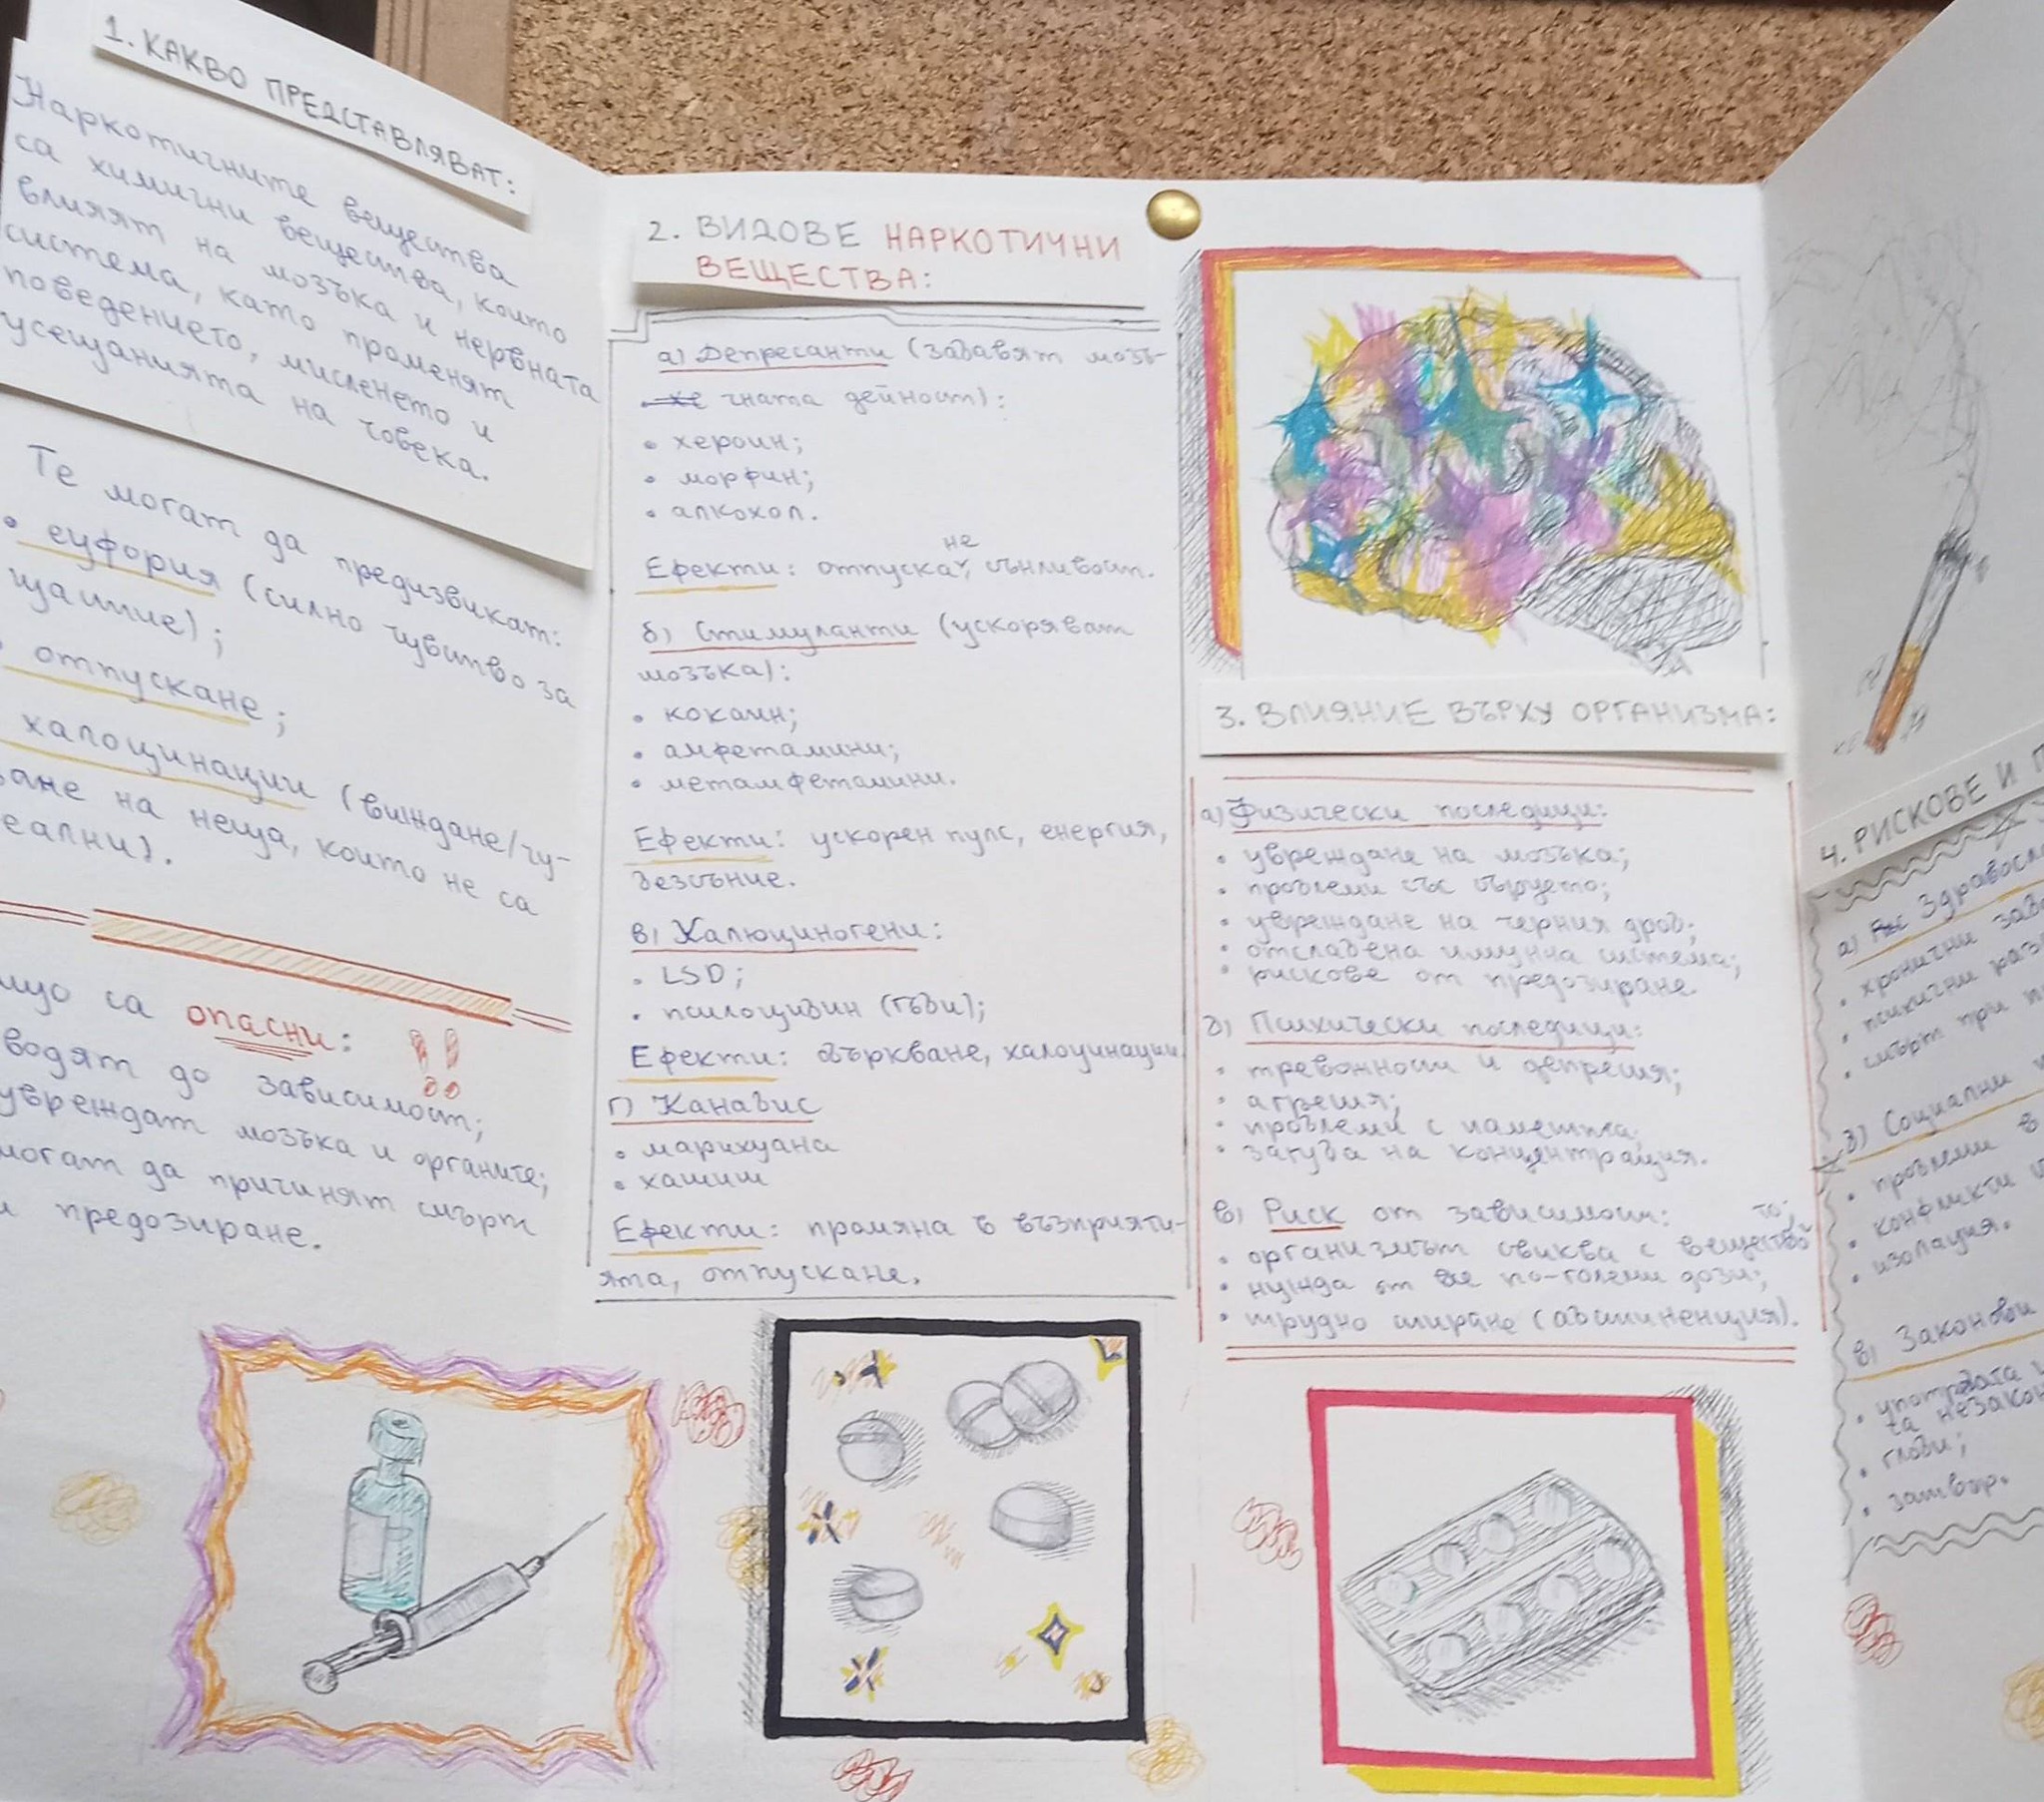 1. КАКВО ПРЕДСТАВЛЯВАТ:
Наркотичните вещества
са химични вещества, които
влияят на мозъка и нервната
система, като променят
поведението, мисленето и
усещанията на човека.
Те могат да предизвикат:
• еуфория (силно чувство за
щастие);
отпускане;
халоцинации (виждане/чу-
ване на неща, които не са
еални).
що са опасни: !!
водят до зависимост;
увреждат мозъка и органите;
могат да причинят смърт
и предозиране.
2. ВИДОВЕ НАРКОТИЧНИ
ВЕЩЕСТВА:
а) Депресанти (забавят мозъ-
чната дейност):
• хероин;
• морфин;
• алкохол.
Ефекти: отпускане, сънливост.
б) Стимуланти (ускоряват
мозъка):
• кокаин;
• амфетамини;
• метамфетамини.
Ефекти: ускорен пулс, енергия,
безсъние.
в) Халюциногени:
• LSD;
• псилоцибин (гъби);
Ефекти: объркване, халоцинации
г) Канабис
• марихуана
• хашиш
Ефекти: промяна в възприяти-
ята, отпускане.
3. ВЛИЯНИЕ ВЪРХУ ОРГАНИЗМА:
а) Физически последици:
• увреждане на мозъка;
• проблеми със сърцето;
• увреждане на черния дроб;
• отслабена имунна система;
• рискове от предозиране.
б) Психически последици:
• тревожност и депресия;
• агресия;
• проблеми с паметта;
• загуба на концентрация.
в) Риск от зависимост:
• организмът свиква с веществото;
• нужда от все по-големи дози;
• трудно спиране (абстиненция).
4. РИСКОВЕ И П
а) Здравосл
• хронични заб
• психични раз
• смърт при п
б) Социални
• проблеми в
• конфликти
• изолация.
в) Законови
• употребата
та незако
• глоби;
• затвор.